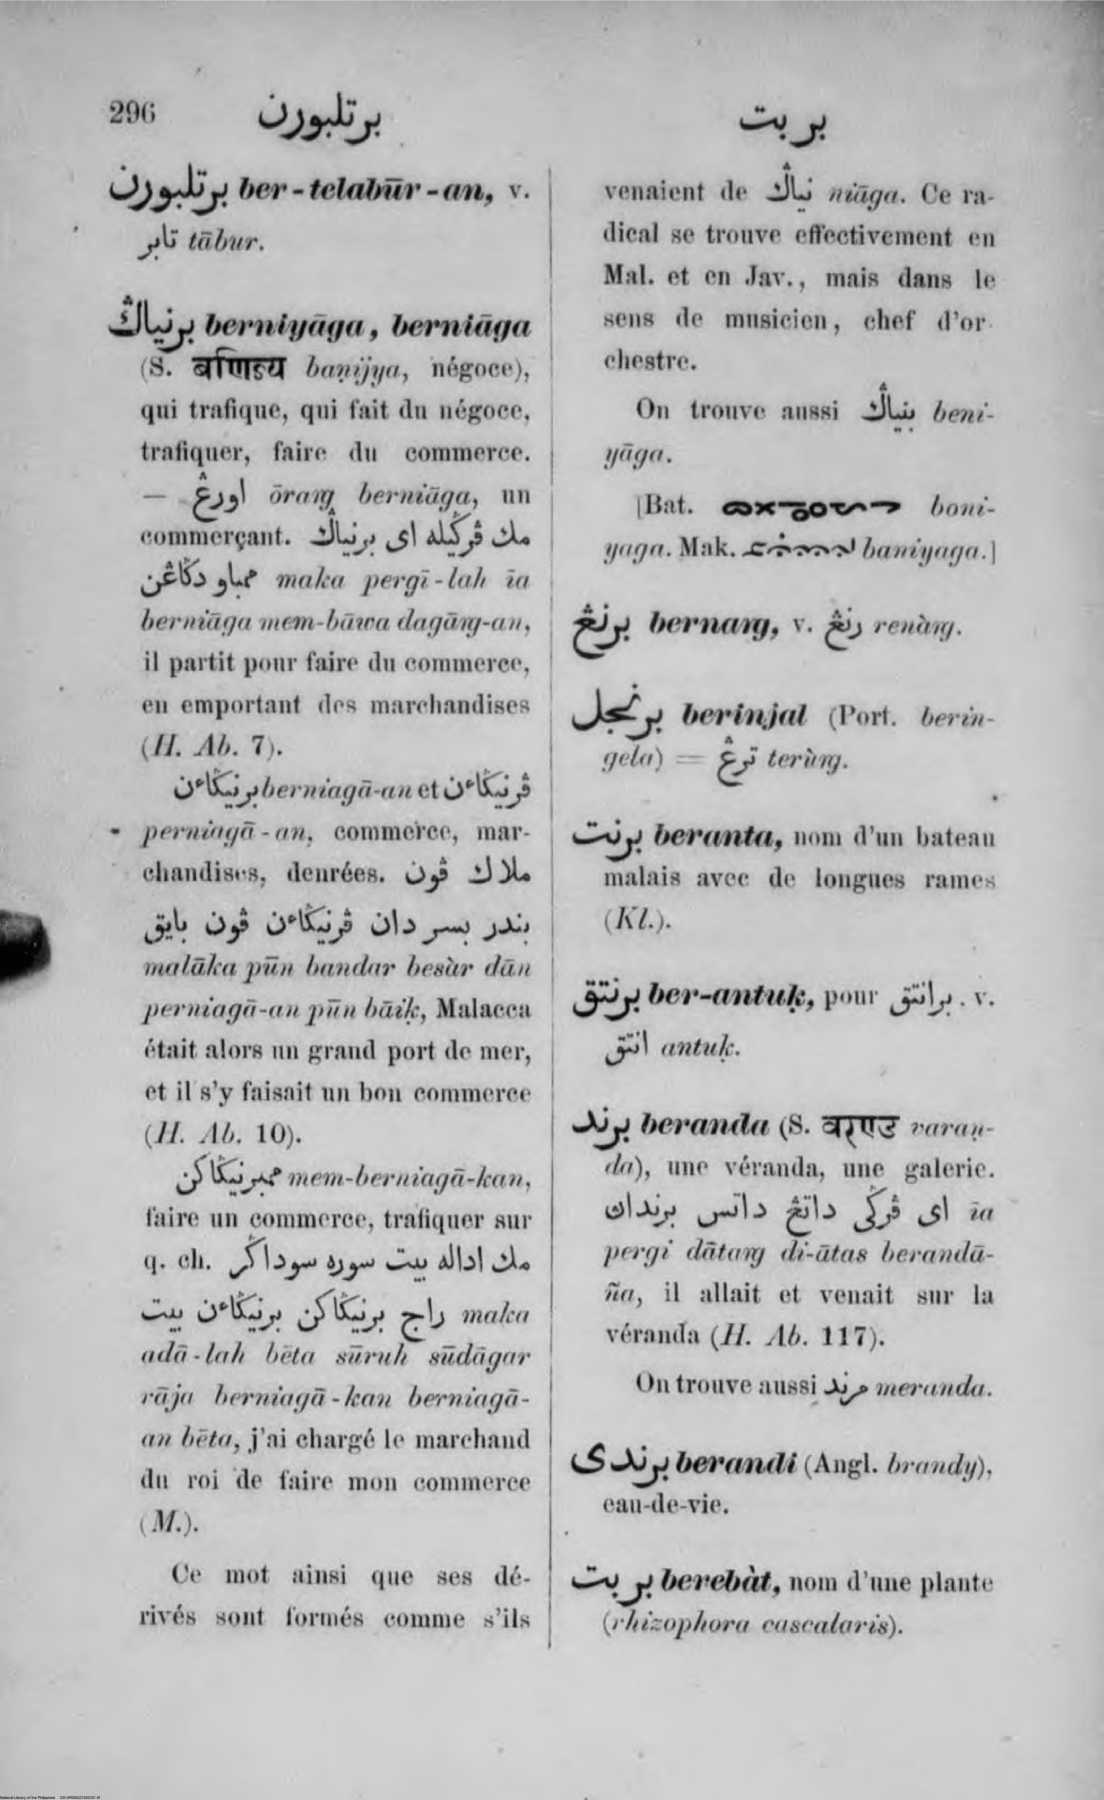 296 برتلبورن بر بت
برتلبورن ber-telabūr-an, v.
تابر tābur.
برنياݢ berniyāga, berniāga
(S. baṇijya, négoce),
qui trafique, qui fait du négoce,
trafiquer, faire du commerce.
— اورڠ ōraṅg berniāga, un
commerçant. مك ڤرݢيله اي برنياݢ
ممباو دݢاڠن maka pergī-lah īa
berniāga mem-bāwa dagāṅg-an,
il partit pour faire du commerce,
en emportant des marchandises
(H. Ab. 7).
برنيݢاءن berniagā-an et ڤرنيݢاءن
perniagā-an, commerce, mar-
chandises, denrées. ملاك ڤون
بندر بسر دان ڤرنيݢاءن ڤون بايق
malāka pūn bandar besàr dān
perniagā-an pūn bāiḳ, Malacca
était alors un grand port de mer,
et il s'y faisait un bon commerce
(H. Ab. 10).
ممبرنيݢاكن mem-berniagā-kan,
faire un commerce, trafiquer sur
q. ch. مك اداله بيت سوره سوداݢر
راج برنيݢاكن برنيݢاءن بيت maka
adā-lah bēta sūruh sūdāgar
rāja berniagā-kan berniagā-
an bēta, j'ai chargé le marchand
du roi de faire mon commerce
(M.).
Ce mot ainsi que ses dé-
rivés sont formés comme s'ils
venaient de نياݢ niāga. Ce ra-
dical se trouve effectivement en
Mal. et en Jav., mais dans le
sens de musicien, chef d'or
chestre.
On trouve aussi بنياݢ beni-
yāga.
[Bat. boni-
yaga. Mak. baniyaga.]
برنڠ bernaṅg, v. رنڠ renàṅg.
برنجل berinjal (Port. berin-
gela) = ترڠ terùṅg.
برنت beranta, nom d'un bateau
malais avec de longues rames
(Kl.).
برنتق ber-antuḳ, pour برانتق. v.
انتق antuḳ.
برند beranda (S. वरण्ड varaṇ-
da), une véranda, une galerie.
اي ڤرݢي داتڠ داتس برندان īa
pergi dātaṅg di-ātas berandā-
ña, il allait et venait sur la
véranda (H. Ab. 117).
On trouve aussi مرند meranda.
برندي berandi (Angl. brandy),
eau-de-vie.
بر بت berebàt, nom d'une plante
(rhizophora cascalaris).